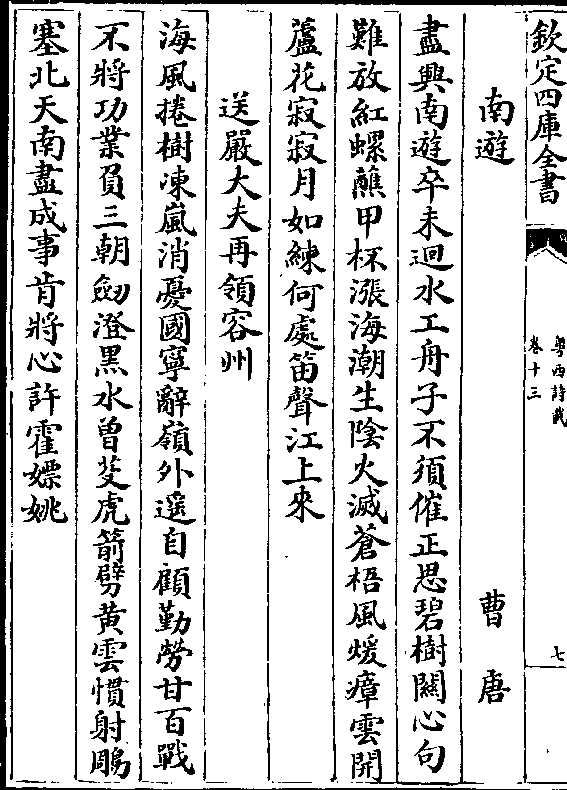 欽定四庫全書
粤西詩載
卷十三
七
南遊 曹唐
盡興南遊卒未迴水工舟子不須催正思碧樹關心句
難放紅螺蘸甲杯漲海潮生陰火滅蒼梧風煖瘴雲開
蘆花寂寂月如練何處笛聲江上來
送嚴大夫再領容州
海風捲樹凍嵐消憂國寧辭嶺外遥自顧勤勞甘百戰
不將功業負三朝劒澄黒水曽芟虎箭劈黄雲慣射鵰
塞北天南盡成事肯將心許霍嫖姚